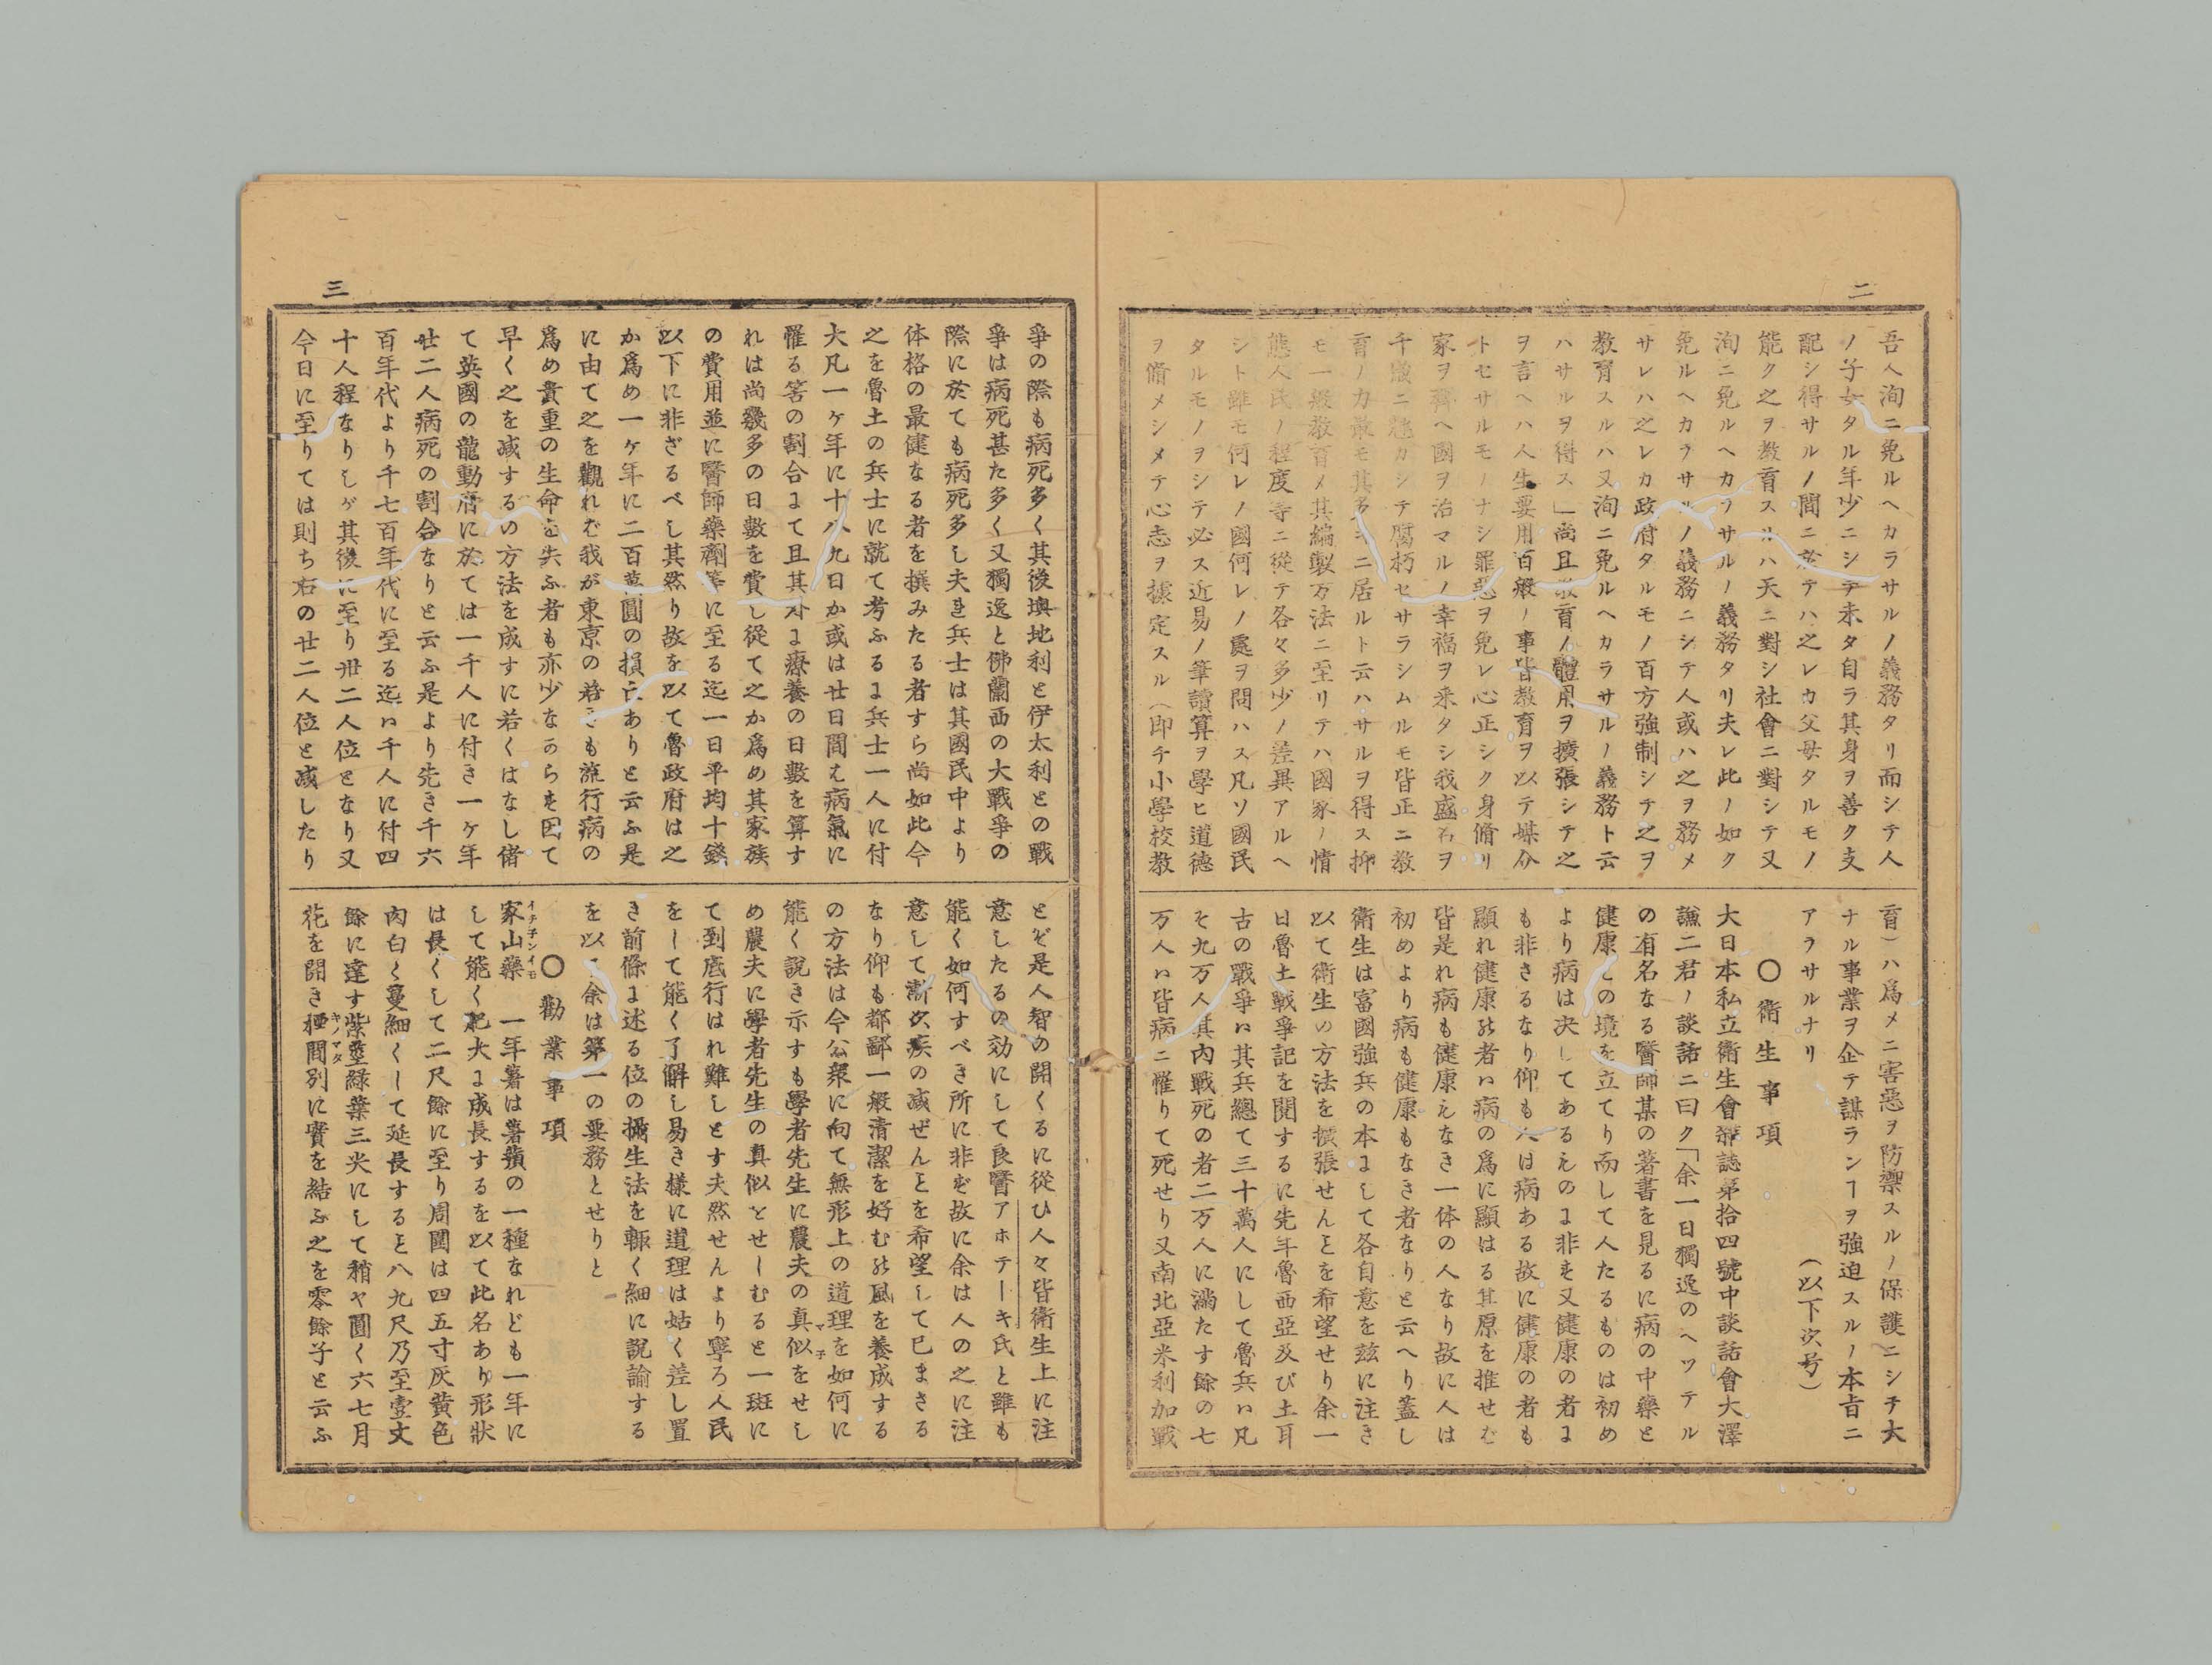 二
吾人洵ニ免ルヘカラサルノ義務タリ而シテ人
ノ子女タル年少ニシテ未タ自ラ其身ヲ善ク支
配シ得サルノ間ニ於テハ之レカ父母タルモノ
能ク之ヲ教育スルハ天ニ對シ社會ニ對シテ又
洵ニ免ルヘカラサルノ義務タリ夫レ此ノ如ク
免ルヘカラサルノ義務ニシテ人或ハ之ヲ務メ
サレハ之レカ政府タルモノ百方強制シテ之ヲ
教育スルハ又洵ニ免ルヘカラサルノ義務ト云
ハサルヲ得ス」尚且教育ノ體用ヲ擴張シテ之
ヲ言ヘハ人生要用百般ノ事皆教育ヲ以テ媒介
トセサルモノナシ罪惡ヲ免レ心正シク身脩リ
家ヲ齊ヘ國ヲ治マルノ幸福ヲ来タシ我盛名ヲ
千歳ニ馳カシテ腐朽セサラシムルモ皆正ニ教
育ノカ最モ其多キニ居ルト云ハサルヲ得ス抑
モ一般教育ノ其編製方法ニ至リテハ國家ノ情
態人民ノ程度等ニ從テ各々多少ノ差異アルヘ
シト雖モ何レノ國何レノ處ヲ問ハス凡ソ國民
タルモノヲシテ必ス近易ノ筆讀算ヲ學ヒ道德
ヲ脩メシメテ心志ヲ據定スル（即チ小學校教
育）ハ爲メニ害惡ヲ防禦スルノ保護ニシテ大
ナル事業ヲ企テ謀ランヿヲ強迫スルノ本旨ニ
アラサルナリ　（以下次号）
〇衛生事項
大日本私立衛生會雜誌第拾四號中談話會大澤
謙二君ノ談話ニ曰ク「余一日獨逸のヘツテル
の有名なる醫師某の著書を見るに病の中藥と
健康との境を立てり而して人たるものは初め
より病は决してあるものに非す又健康の者に
も非さるなり仰も人は病ある故に健康の者も
顯れ健康の者ハ病の爲に顯はる其原を推せば
皆是れ病も健康もなき一体の人なり故に人は
初めより病も健康もなき者なりと云へり蓋し
衛生は富國強兵の本にして各自意を玆に注き
以て衛生の方法を擴張せんことを希望せり余一
日魯土戰爭記を閲するに先年魯西亞及び土耳
古の戰爭ハ其兵總て三十萬人にして魯兵ハ凡
そ九万人其内戰死の者二万人に滿たす餘の七
万人ハ皆病ニ罹りて死せり又南北亞米利加戰
三
爭の際も病死多く其後墺地利と伊太利との戰
爭は病死甚た多く又獨逸と佛蘭西の大戰爭の
際に於ても病死多し夫れ兵士は其國民中より
体格の最健なる者を撰みたる者すら尚如此今
之を魯土の兵士に就て考ふるに兵士一人に付
大凡一ヶ年に十八九日か或は廿日間は病氣に
罹る筈の割合にて且其外に療養の日數を算す
れは尚幾多の日數を費し從て之か爲め其家族
の費用並に醫師藥劑等に至る迄一日平均十錢
以下に非ざるべし其然り故を以て魯政府は之
か爲め一ヶ年に二百萬圓の損亡ありと云ふ是
に由て之を觀れば我が東京の若きも流行病の
爲め貴重の生命を失ふ者も亦少なからす因て
早く之を减するの方法を成すに若くはなし偖
て英國の龍動府に於ては一千人に付き一ヶ年
廿二人病死の割合なりと云ふ是より先き千六
百年代より千七百年代に至る迄ハ千人に付四
十人程なりしが其後に至り卅二人位となり又
今日に至りては則ち右の廿二人位と减したり
とぞ是人智の開くるに從ひ人々皆衛生上に注
意したるの効にして良醫アホテーキ氏と雖も
能く如何すべき所に非ず故に余は人の之に注
意して漸次疾の减ぜんことを希望して已まざる
なり仰も都鄙一般清潔を好むの風を養成する
の方法は今公衆に向て無形上の道理を如何に
能く説き示すも學者先生に農夫の真似マ子をせし
め農夫に學者先生の真似をせしむると一斑に
て到底行はれ難しとす夫然せんより寧ろ人民
をして能く了解し易き様に道理は姑く差し置
き前條に述る位の攝生法を輙く細に説諭する
を以て余は第一の要務とせりと
〇勸業事項
家山藥イチ子ンイモ　一年薯は薯蕷の一種なれども一年に
して能く肥大に成長するを以て此名あり形狀
は長くして二尺餘に至り周圍は四五寸灰黄色
内白く蔓細くして延長すること八九尺乃至壹丈
餘に達す紫莖綠葉三尖にして稍や圓く六七月
花を開き椏間キノマタ別に實を結ふ之を零餘子と云ふ